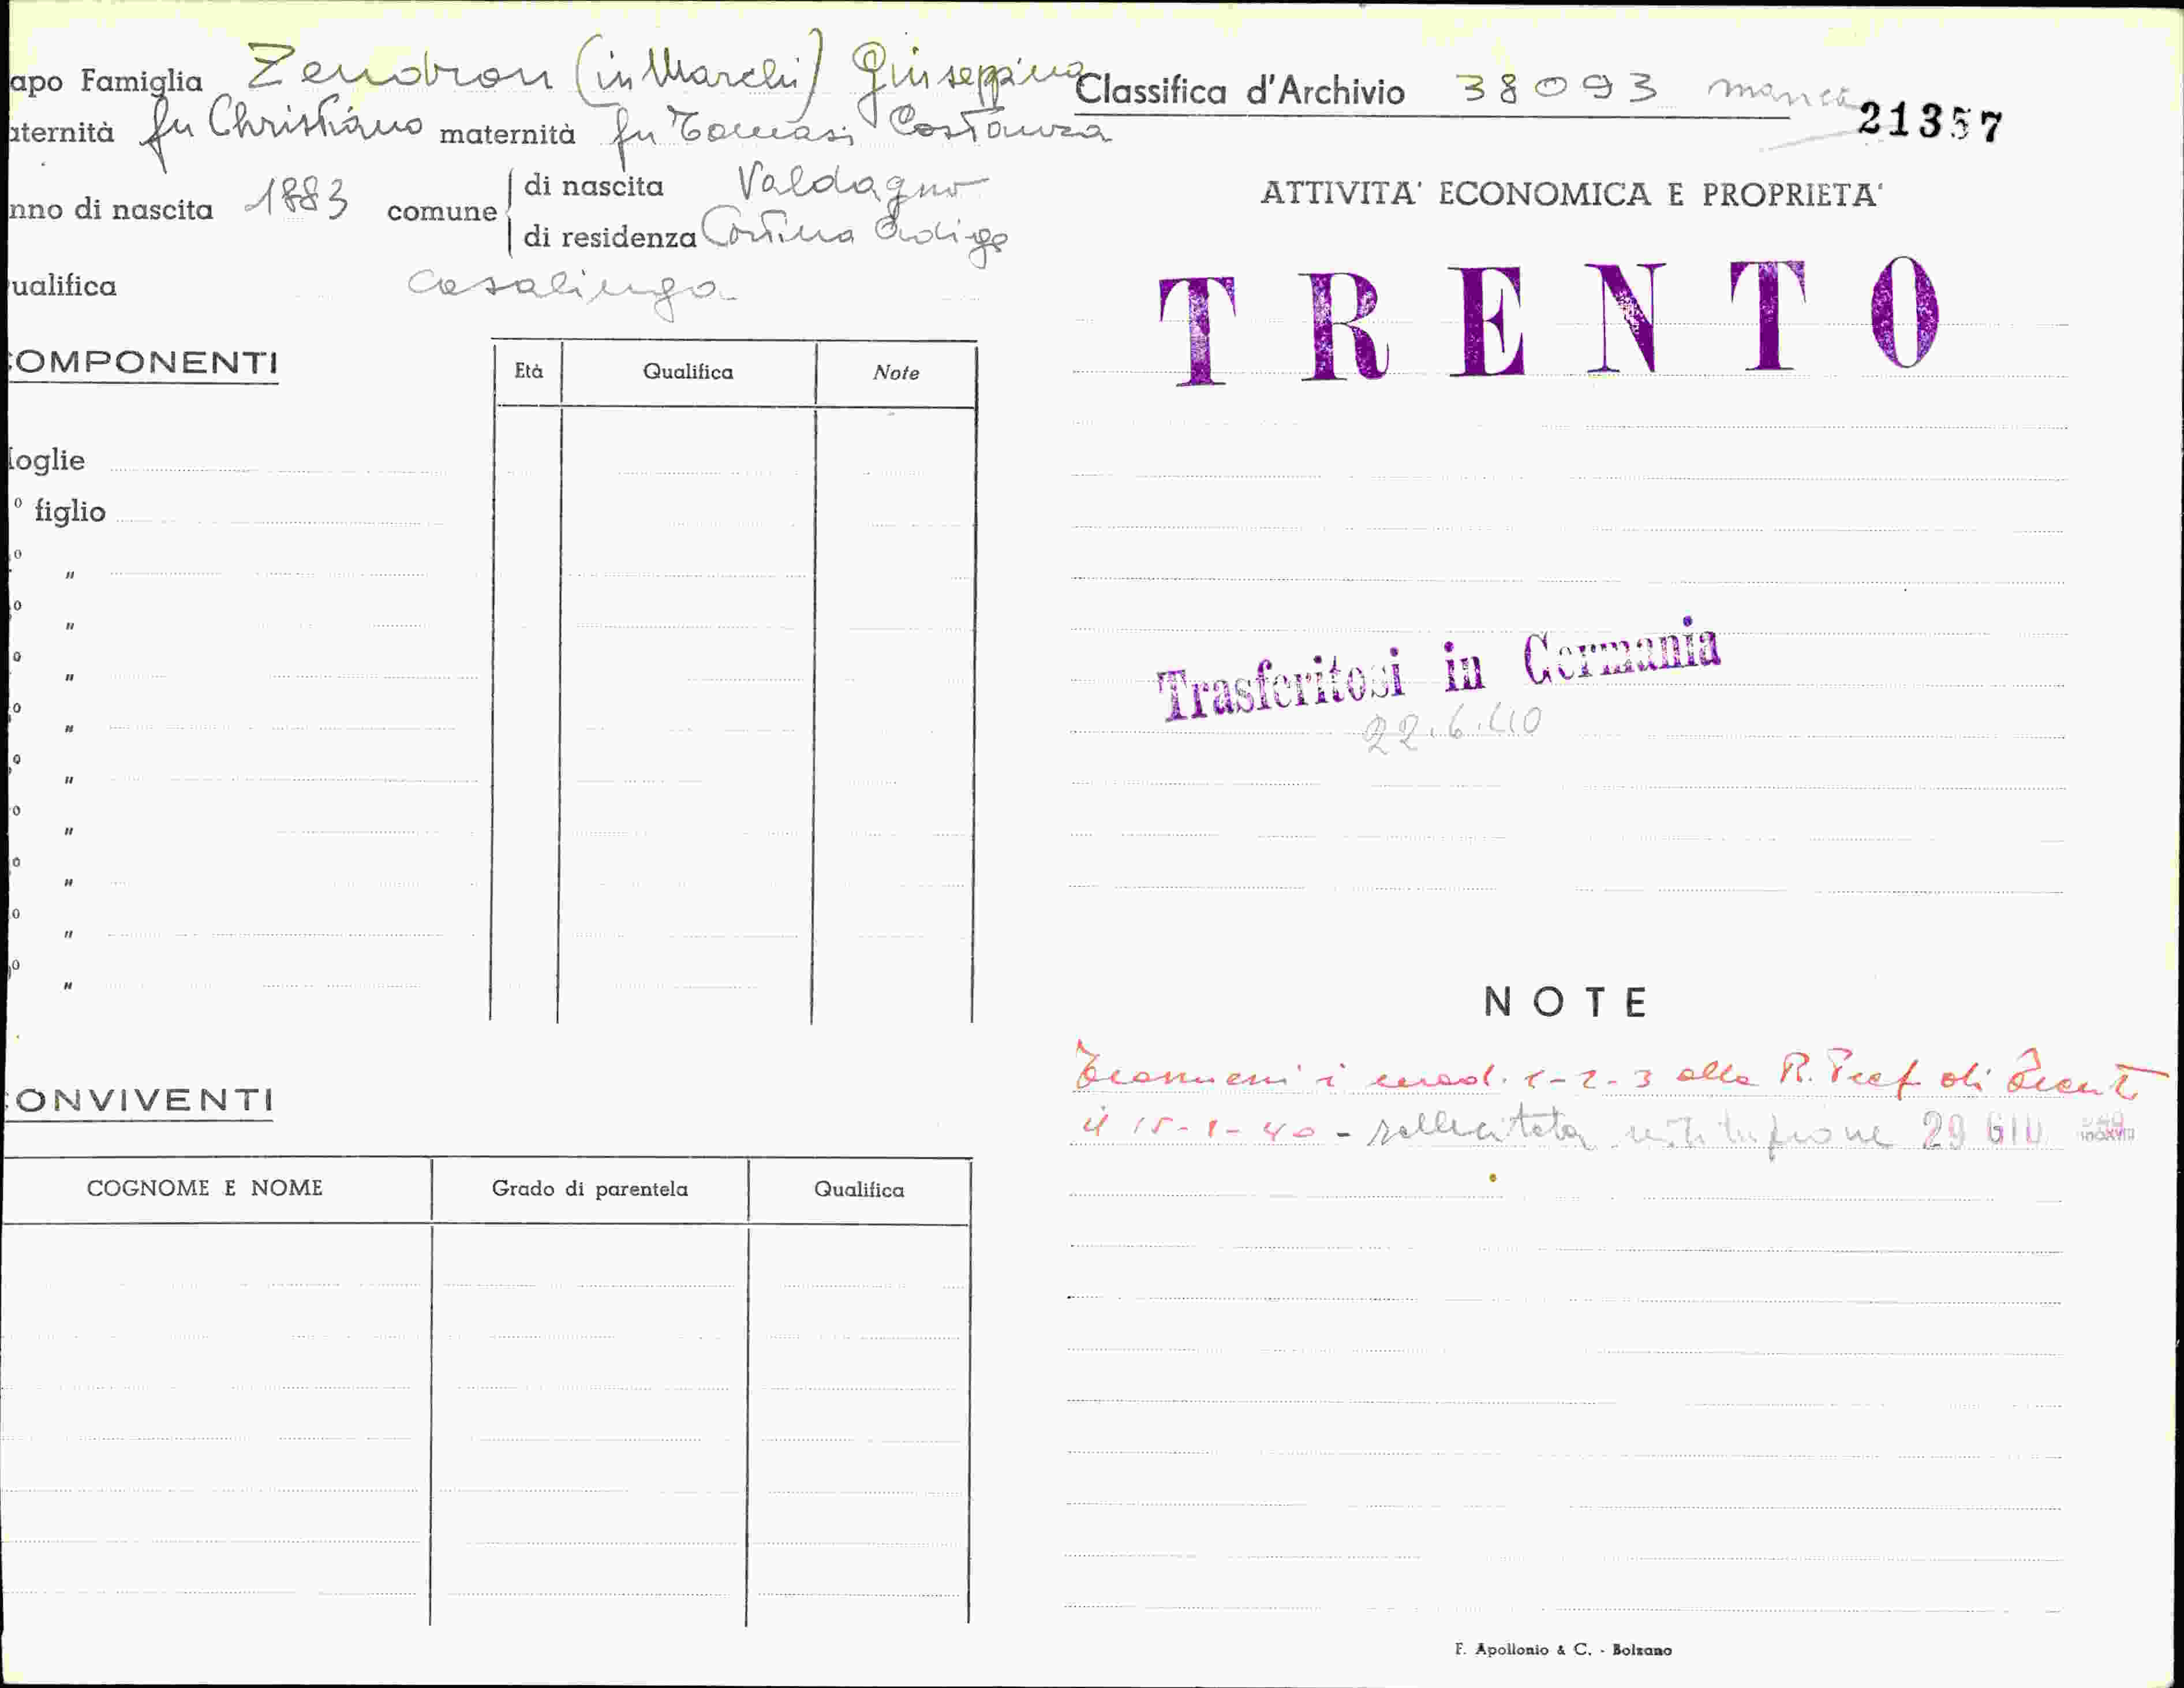 apo Famiglia Zendron (in Marchi) Giuseppina
aternità fu Christiano maternità fu Tomasi Costanza
nno di nascita 1883 comune di nascita Valdagno
di residenza Cortina Adige
ualifica casalinga
COMPONENTI
Età Qualifica Note
oglie
º figlio
º "
º "
º "
º "
º "
º "
º "
º "
º "
CONVIVENTI
COGNOME E NOME Grado di parentela Qualifica
Classifica d'Archivio 38093 manca 21357
ATTIVITA' ECONOMICA E PROPRIETA'
TRENTO
Trasferitosi in Germania
22.6.40
NOTE
Trasmessi i mod. 1-2-3 alla R. Pref di Trento
il 15-1-40 - sollecitata restituzione 29 GIU
F. Apollonio & C. - Bolzano